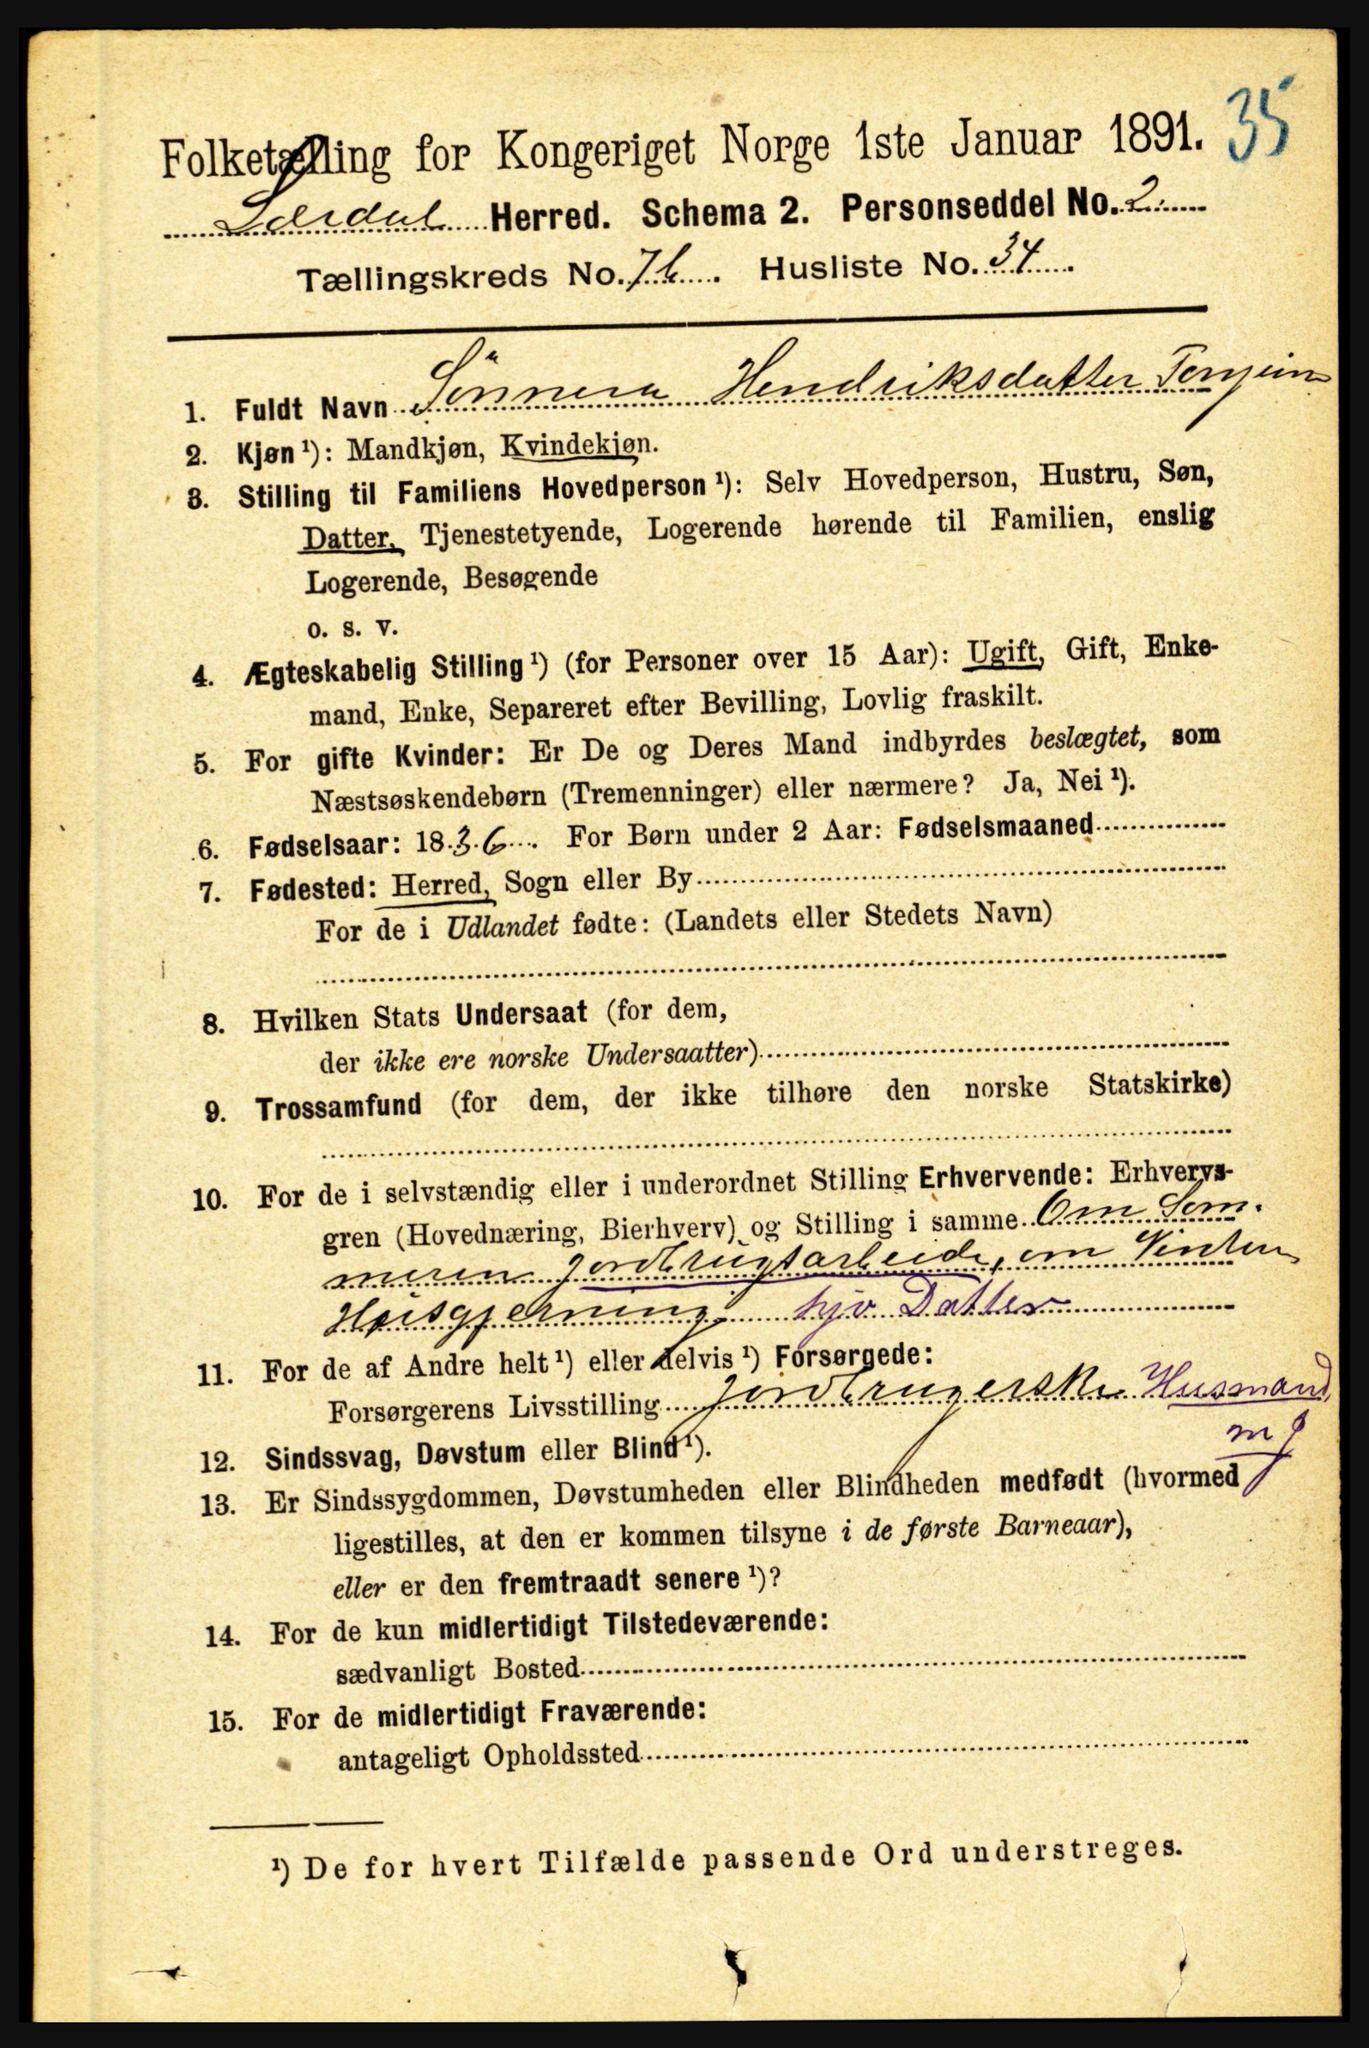 35
Folketælling for Kongeriget Norge 1ste Januar 1891.
Lærdal Herred. Schema 2. Personseddel No. 2.
Tællingskreds No. 7b. Husliste No. 34.
1. Fuldt Navn Sønneva Hendriksdatter
2. Kjøn ¹): Mandkjøn, Kvindekjøn.
3. Stilling til Familiens Hovedperson ¹): Selv Hovedperson, Hustru, Søn,
Datter, Tjenestetyende, Logerende hørende til Familien, enslig
Logerende, Besøgende
o. s. v.
4. Ægteskabelig Stilling ¹) (for Personer over 15 Aar): Ugift, Gift, Enke-
mand, Enke, Separeret efter Bevilling, Lovlig fraskilt.
5. For gifte Kvinder: Er De og Deres Mand indbyrdes beslægtet, som
Næstsøskendebørn (Tremenninger) eller nærmere? Ja, Nei ¹).
6. Fødselsaar: 1836. For Børn under 2 Aar: Fødselsmaaned
7. Fødested: Herred, Sogn eller By
For de i Udlandet fødte: (Landets eller Stedets Navn)
8. Hvilken Stats Undersaat (for dem,
der ikke ere norske Undersaatter)
9. Trossamfund (for dem, der ikke tilhøre den norske Statskirke)
10. For de i selvstændig eller i underordnet Stilling Erhvervende: Erhvervs-
gren (Hovednæring, Bierhverv) og Stilling i samme Om Som-
meren jordbrugsarbeide, om Vinteren
Husgjerning. hjv Datter
11. For de af Andre helt ¹) eller delvis ¹) Forsørgede:
Forsørgerens Livsstilling jordbrugerske Husmand
m J
12. Sindssvag, Døvstum eller Blind ¹).
13. Er Sindssygdommen, Døvstumheden eller Blindheden medfødt (hvormed
ligestilles, at den er kommen tilsyne i de første Barneaar),
eller er den fremtraadt senere ¹)?
14. For de kun midlertidigt Tilstedeværende:
sædvanligt Bosted
15. For de midlertidigt Fraværende:
antageligt Opholdssted
¹) De for hvert Tilfælde passende Ord understreges.